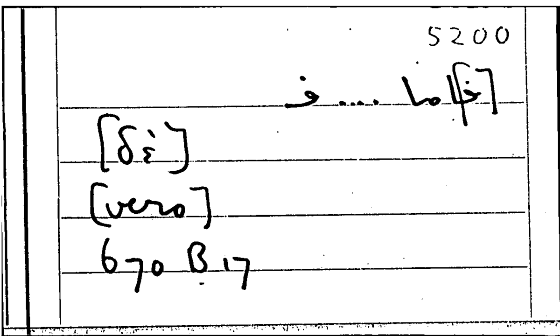 5200
[ف]اما .... ف
[δὲ]
[vero]
670 B 17